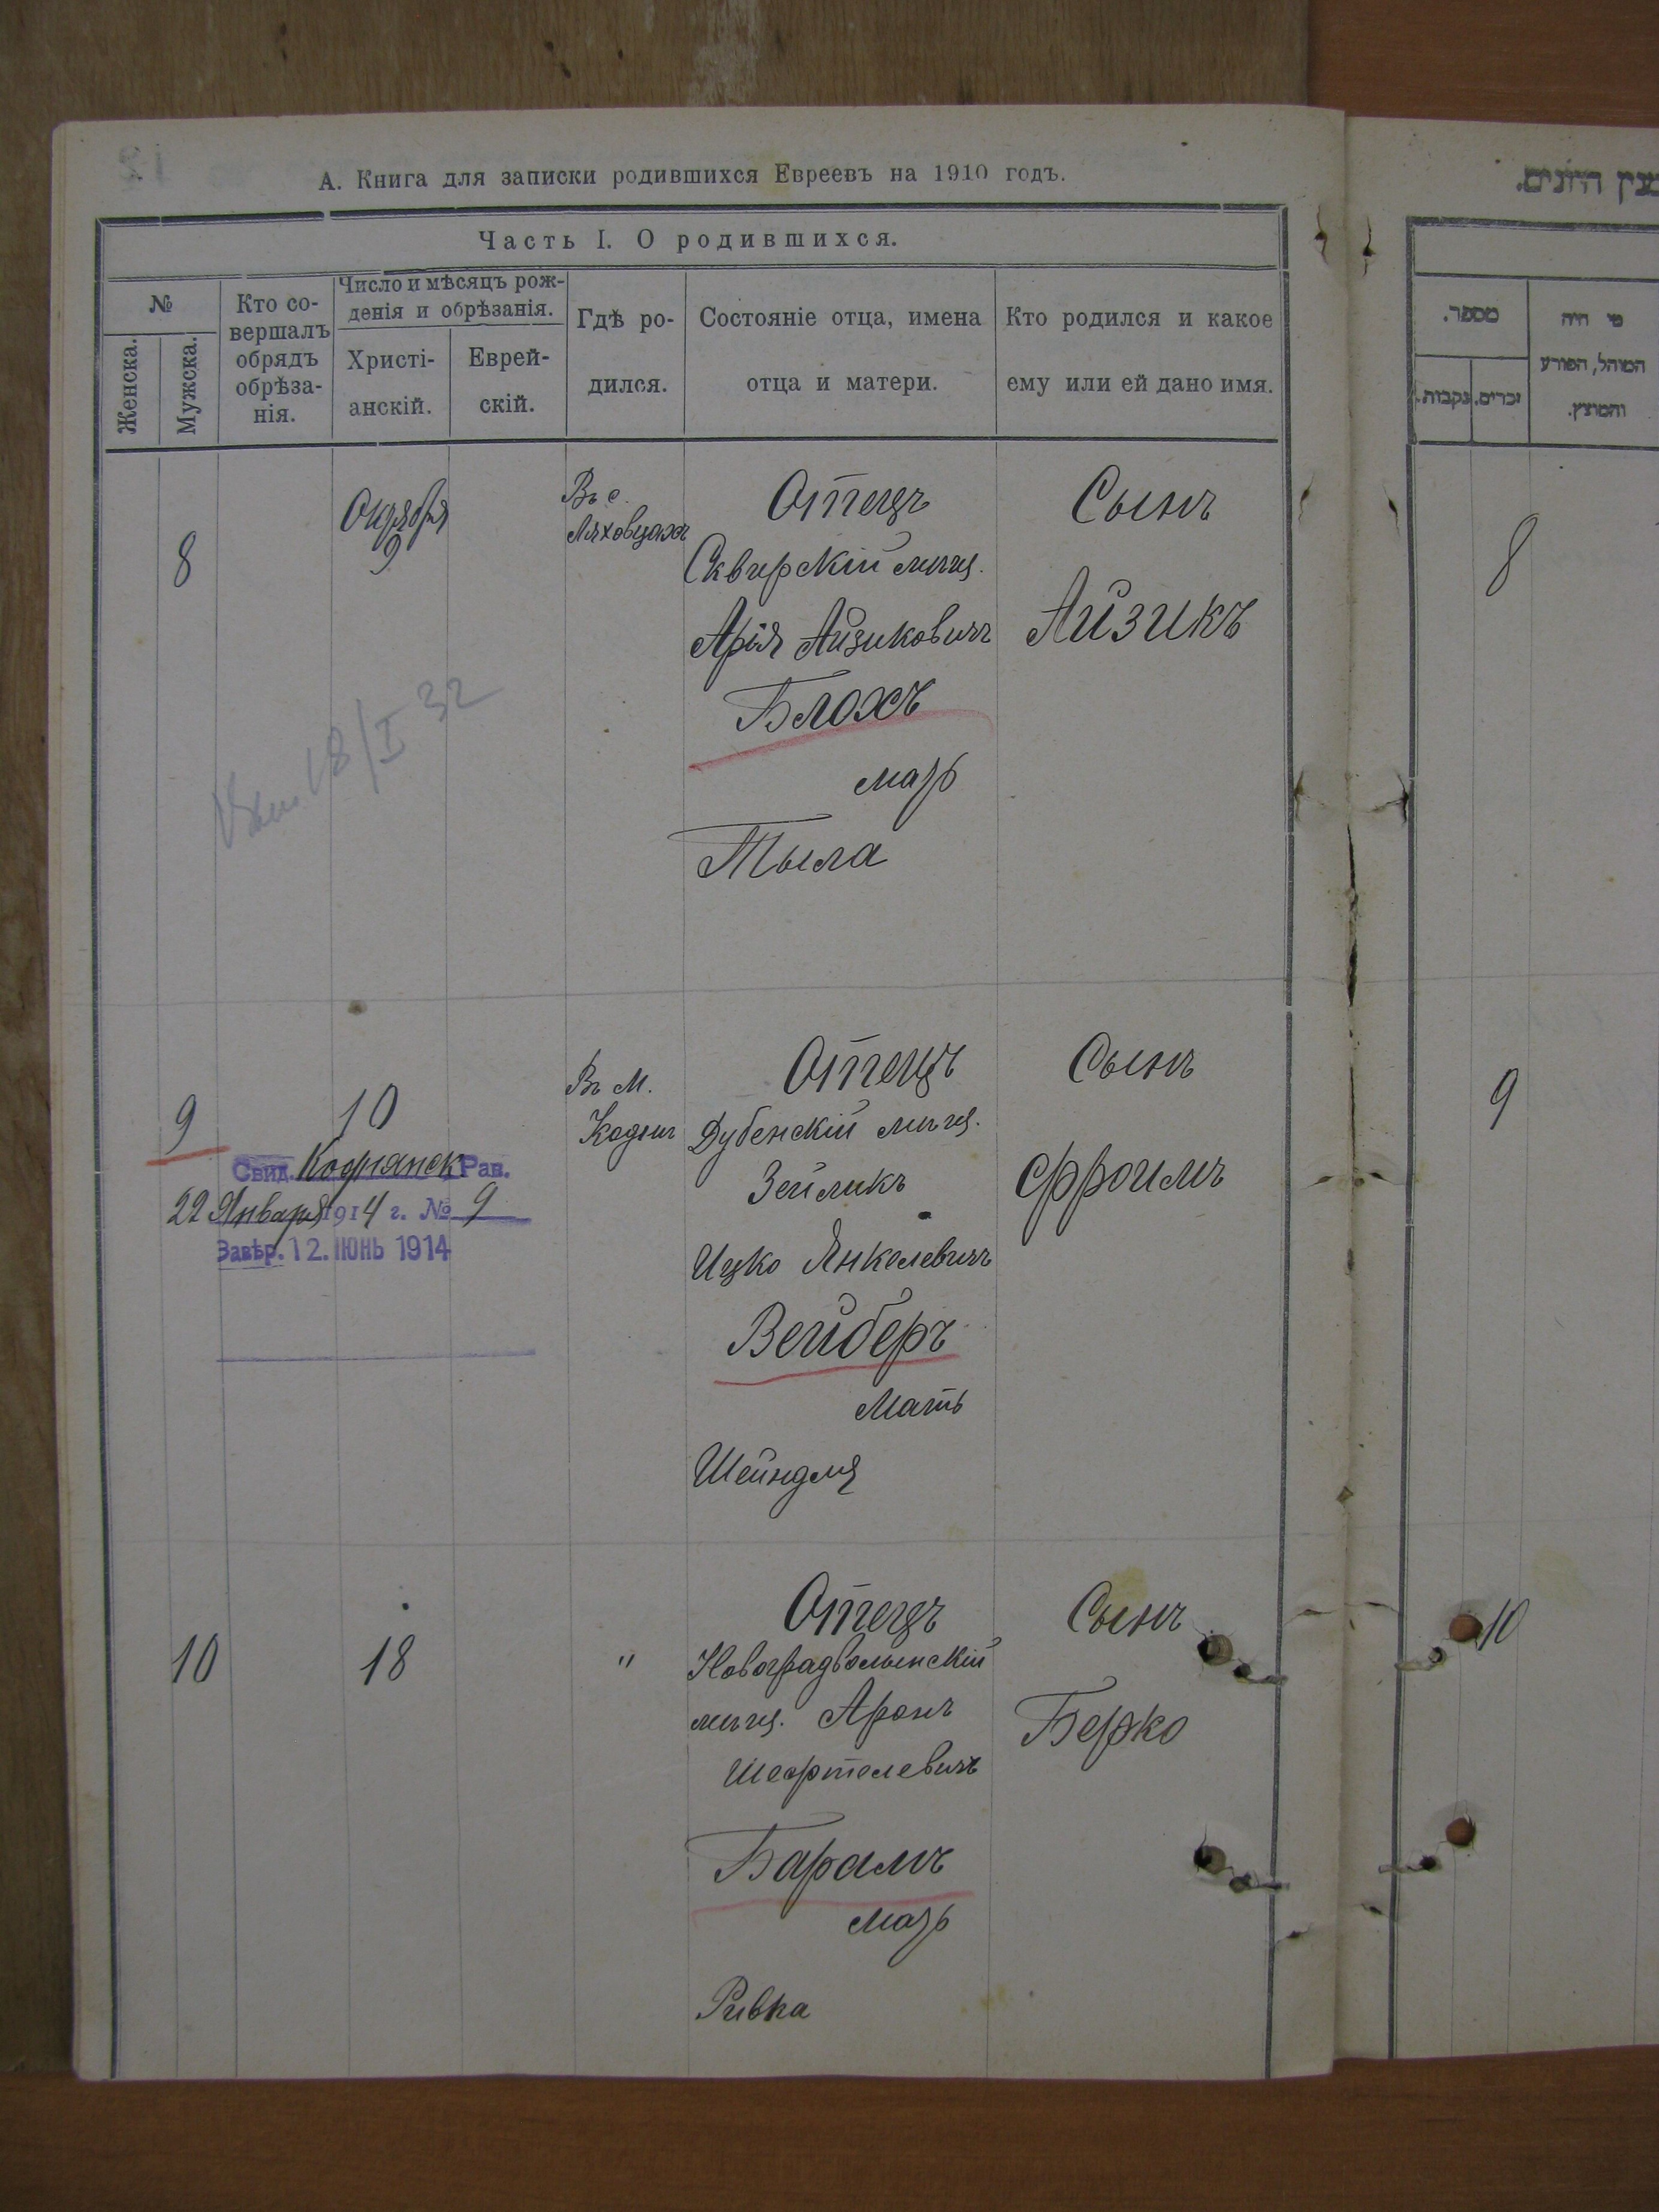 А. Книга для записки родившихся Евреевъ на 1910 годъ.
Часть I. О родившихся.
№
Женска.
Мужска.
Кто со-
вершалъ
обрядъ
обрѣза-
нія.
Число и мѣсяцъ рож-
денія и обрѣзанія.
Христі-
анскій.
Еврей-
скій.
Гдѣ ро-
дился.
Состояніе отца, имена
отца и матери.
Кто родился и какое
ему или ей дано имя.
8
Октября
9
Въ с.
Ляховцахъ
Отецъ
Сквирскій мѣщ.
Арія Айзиковичъ
Блохъ
мать
Тыла
Сынъ
Айзикъ
18/I 32
9
10
Свид. Коднянск Рав.
22 Января 1914 г. № 9
Завѣр. 12. ІЮНЬ 1914
Въ м.
Кодни
Отецъ
Дубенскій мѣщ.
Зейликъ
Ицко Янкелевичъ
Вейберъ
Мать
Шейндля
Сынъ
Фроимъ
10
18
"
Отецъ
Новоградволынскій
мѣщ. Аронъ
Шефтелевичъ
Барамъ
мать
Ривка
Сынъ
Берко
מספר.
זכרים.
נקבות.
מי היה
המוהל, הפורע
והמוצץ.
8
9
10